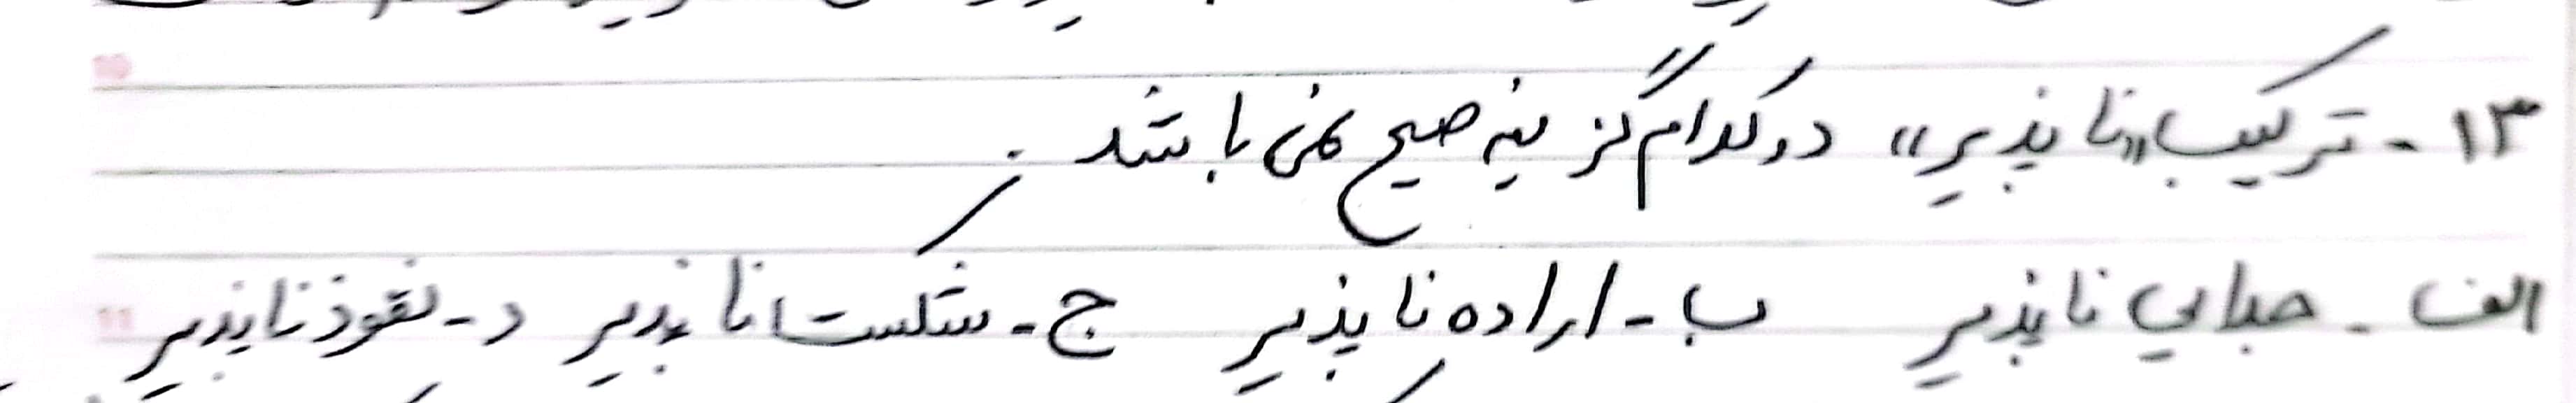 ۱۳- ترکیب «ناپذیر» در کدام گزینه صحیح نمی باشد.
الف- جدایی ناپذیر ب- اراده ناپذیر ج- شکست ناپذیر د- نفوذ ناپذیر